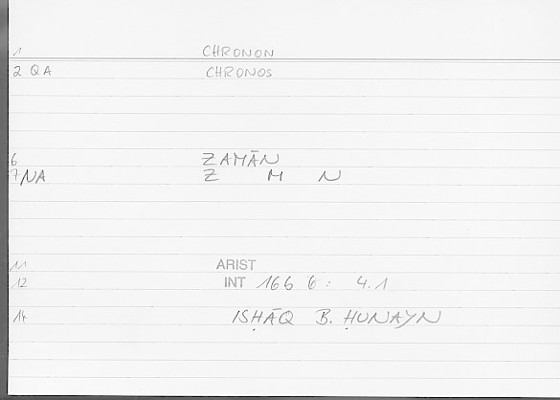 1 CHRONON
2 QA CHRONOS
6 ZAMĀN
7/NA Z M N
11 ARIST
12 INT 166 6 : 4.1
14 ISḤĀQ B. ḤUNAYN